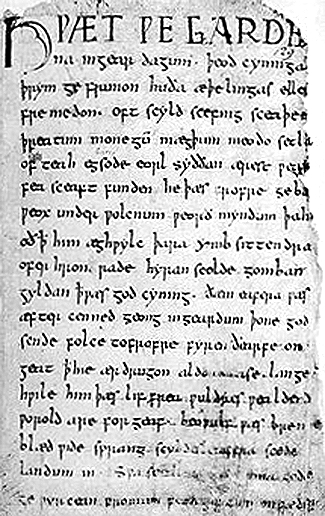 HǷÆT ǷE GARDE
na ingear dagum. þeod cyninga
þrym ge frunon huða æþelingas ellen
fremedon. oft scyld scefing sceaþen
þreatum monegū mægþum meodo setla
of teah egsode eorl syððan ærest ƿearð
fea sceaft funden he þæs frofre geba
ƿeox under ƿolcnum ƿeorð myndum þah
oð þ̄ him æghƿylc þara ymb sittendra
ofer hron rade hyran scolde gomban
gyldan þæt ƿæs god cyning. ðæm eafera ƿæs
æfter cenned geong ingeardum þone god
sende folce tofrofre fyren ðearfe on
geat þ̄ hie ær drugon aldor ase. lange
hƿile him þæs lif frea ƿuldres ƿealdend
ƿorold are for geaf. beoƿulf ƿæs breme
blæd ƿide sprang scyldes eafera scede
landum in. Sƿa sceal guma gode
ge ƿyrcean fromum feoh giftum